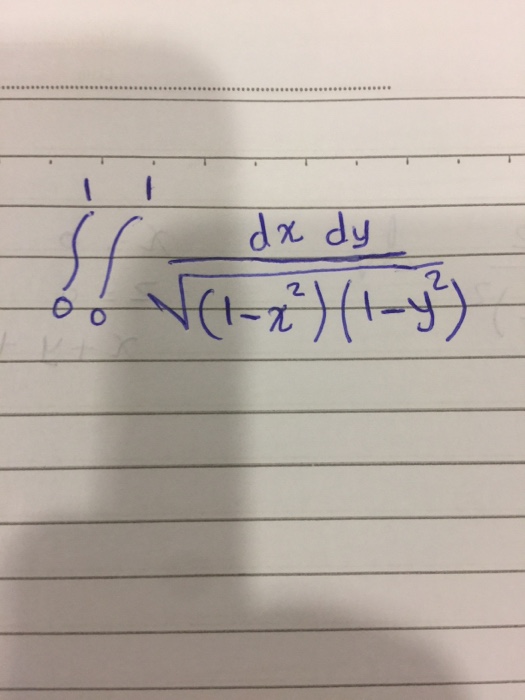 ∫₀¹ ∫₀¹ dx dy / √((1-x²)(1-y²))